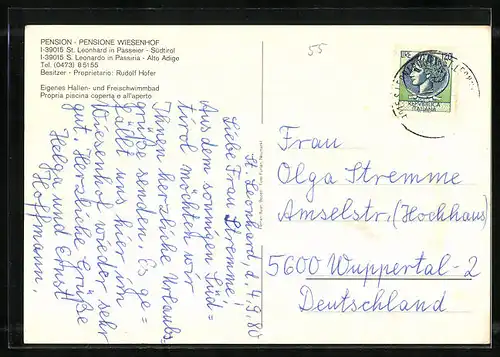 PENSION - PENSIONE WIESENHOF
I-39015 St. Leonhard in Passeier - Südtirol
I-39015 S. Leonardo in Passiria - Alto Adige
Tel. (0473) 85155
Besitzer - Proprietario: Rudolf Hofer
Eigenes Hallen- und Freischwimmbad
Propria piscina coperta e all'aperto
55
St. Leonhard, d. 4.9.80
Liebe Frau Stremme!
Aus dem sonnigen Süd-
tirol möchten wir
Ihnen herzliche Urlaubs
grüße senden. Es ge-
fällt uns hier im
Wiesenhof wieder sehr
gut. Herzliche Grüße
Helga und Ernst
Hoffmann.
REPUBBLICA
ITALIANA
Frau
Olga Stremme
Amselstr. (Hochhaus)
5600 Wuppertal-2
Deutschland